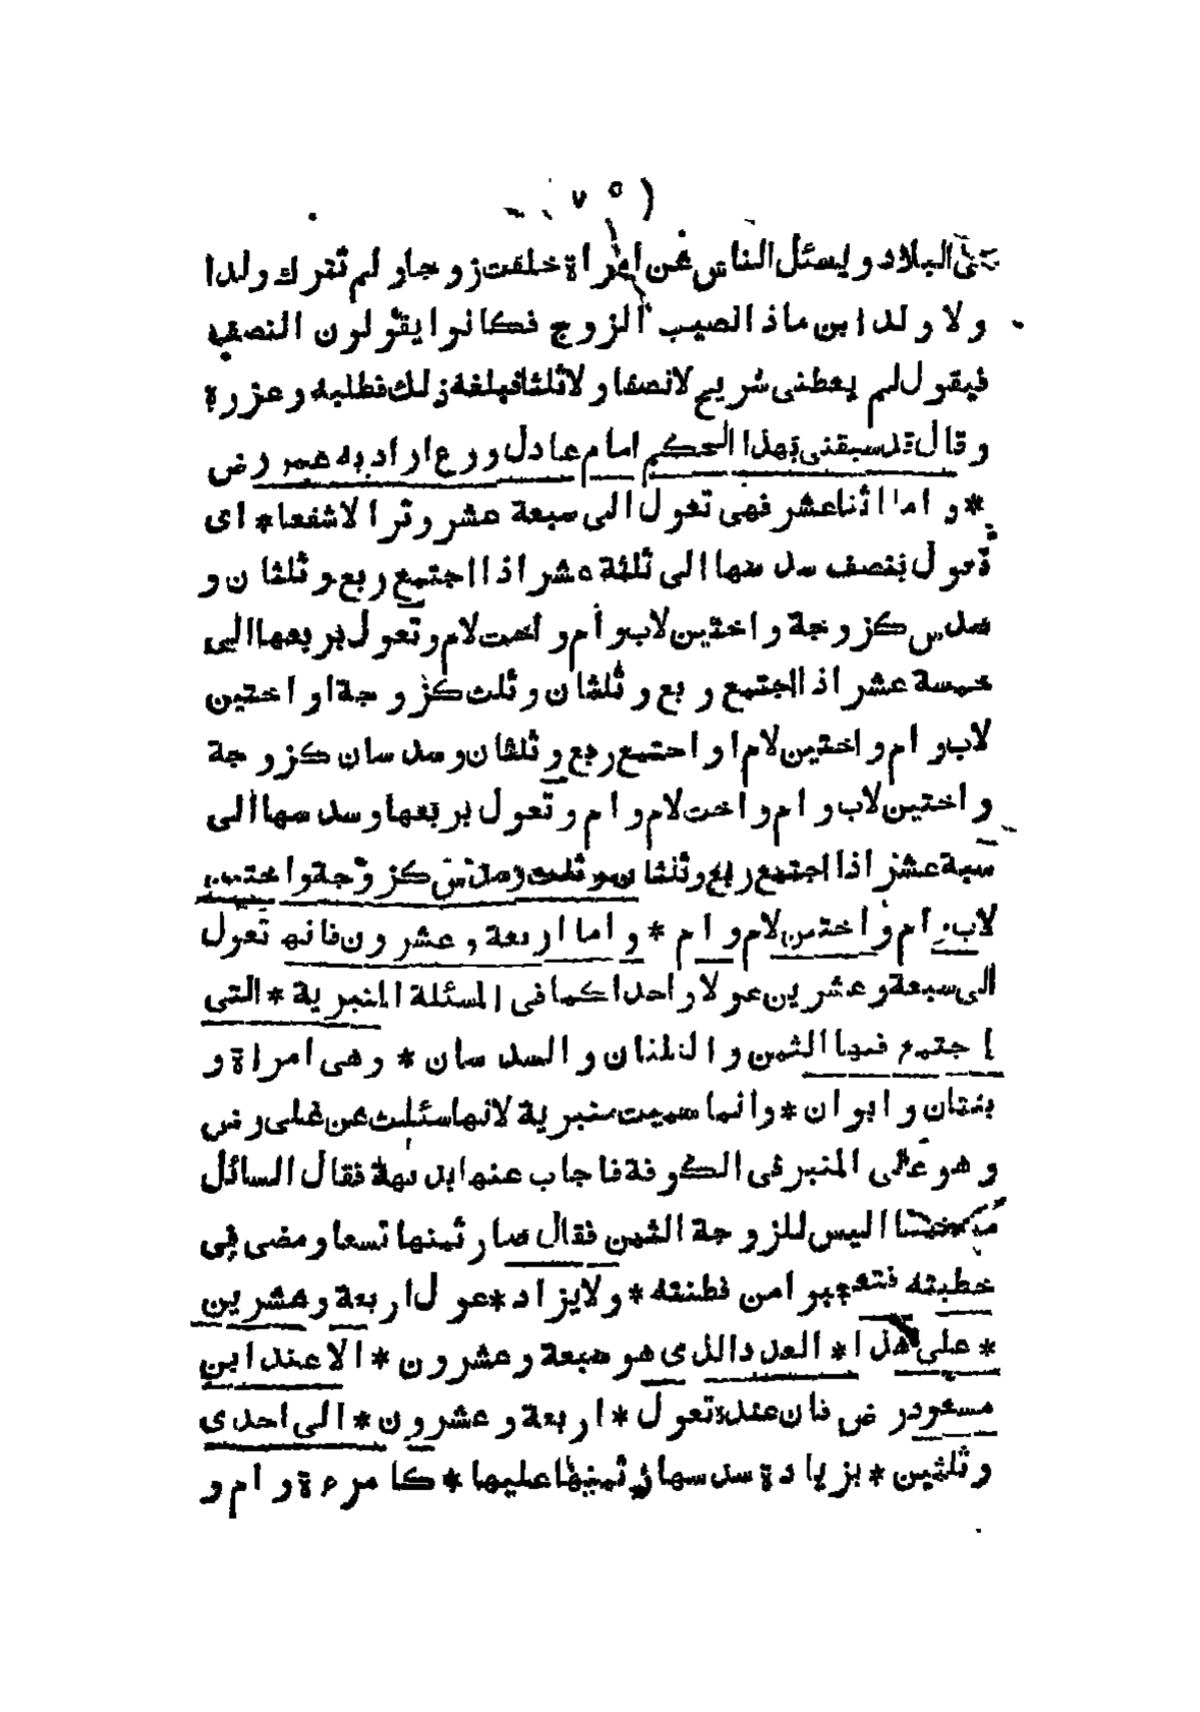 ( ٧٥
فى البلاد ويسئل الناس عن امراة خلفت زوجا ولم تترك ولدا
ولا ولد ابن ماذا نصيب الزوج فكانوا يقولون النصف
فيقول لم يعطنى شريح لا نصفا ولا ثلثا فبلغه ذلك فطلبه وعزره
وقال قد سبقنى بهذا الحكم امام عادل ورع اراد به عمر رض
* واما اثنا عشر فهى تعول الى سبعة عشر وترا لا شفعا * اى
تعول بنصف سدسها الى ثلثة عشر اذا اجتمع ربع وثلثان و
سدس كزوجة واختين لاب وام واخت لام وتعول بربعها الى
خمسة عشر اذا اجتمع ربع وثلثان وثلث كزوجة او اختين
لاب وام واختين لام او اجتمع ربع وثلثان وسدسان كزوجة
واختين لاب وام واخت لام وام وتعول بربعها وسدسها الى
سبعة عشر اذا اجتمع ربع وثلثان وثلث وسدس كزوجة واختين
لاب وام واختين لام وام * واما اربعة وعشرون فانها تعول
الى سبعة وعشرين عولا واحدا كما فى المسئلة المنبرية * التى
اجتمع فيها الثمن والثلثان والسدسان * وهى امراة و
بنتان وابوان * وانما سميت منبرية لانها سئلت عن على رض
وهو على المنبر فى الكوفة فاجاب عنها بديهة فقال السائل
اليس للزوجة الثمن فقال صار ثمنها تسعا ومضى فى
خطبته فتعجبوا من فطنته * ولا يزاد * عول اربعة وعشرين
* على هذا * العدد الذى هو سبعة وعشرون * الا عند ابن
مسعود رض فان عنده تعول * اربعة وعشرون * الى احدى
وثلثين * بزيادة سدسها وثمنها عليها * كامرءة وام و